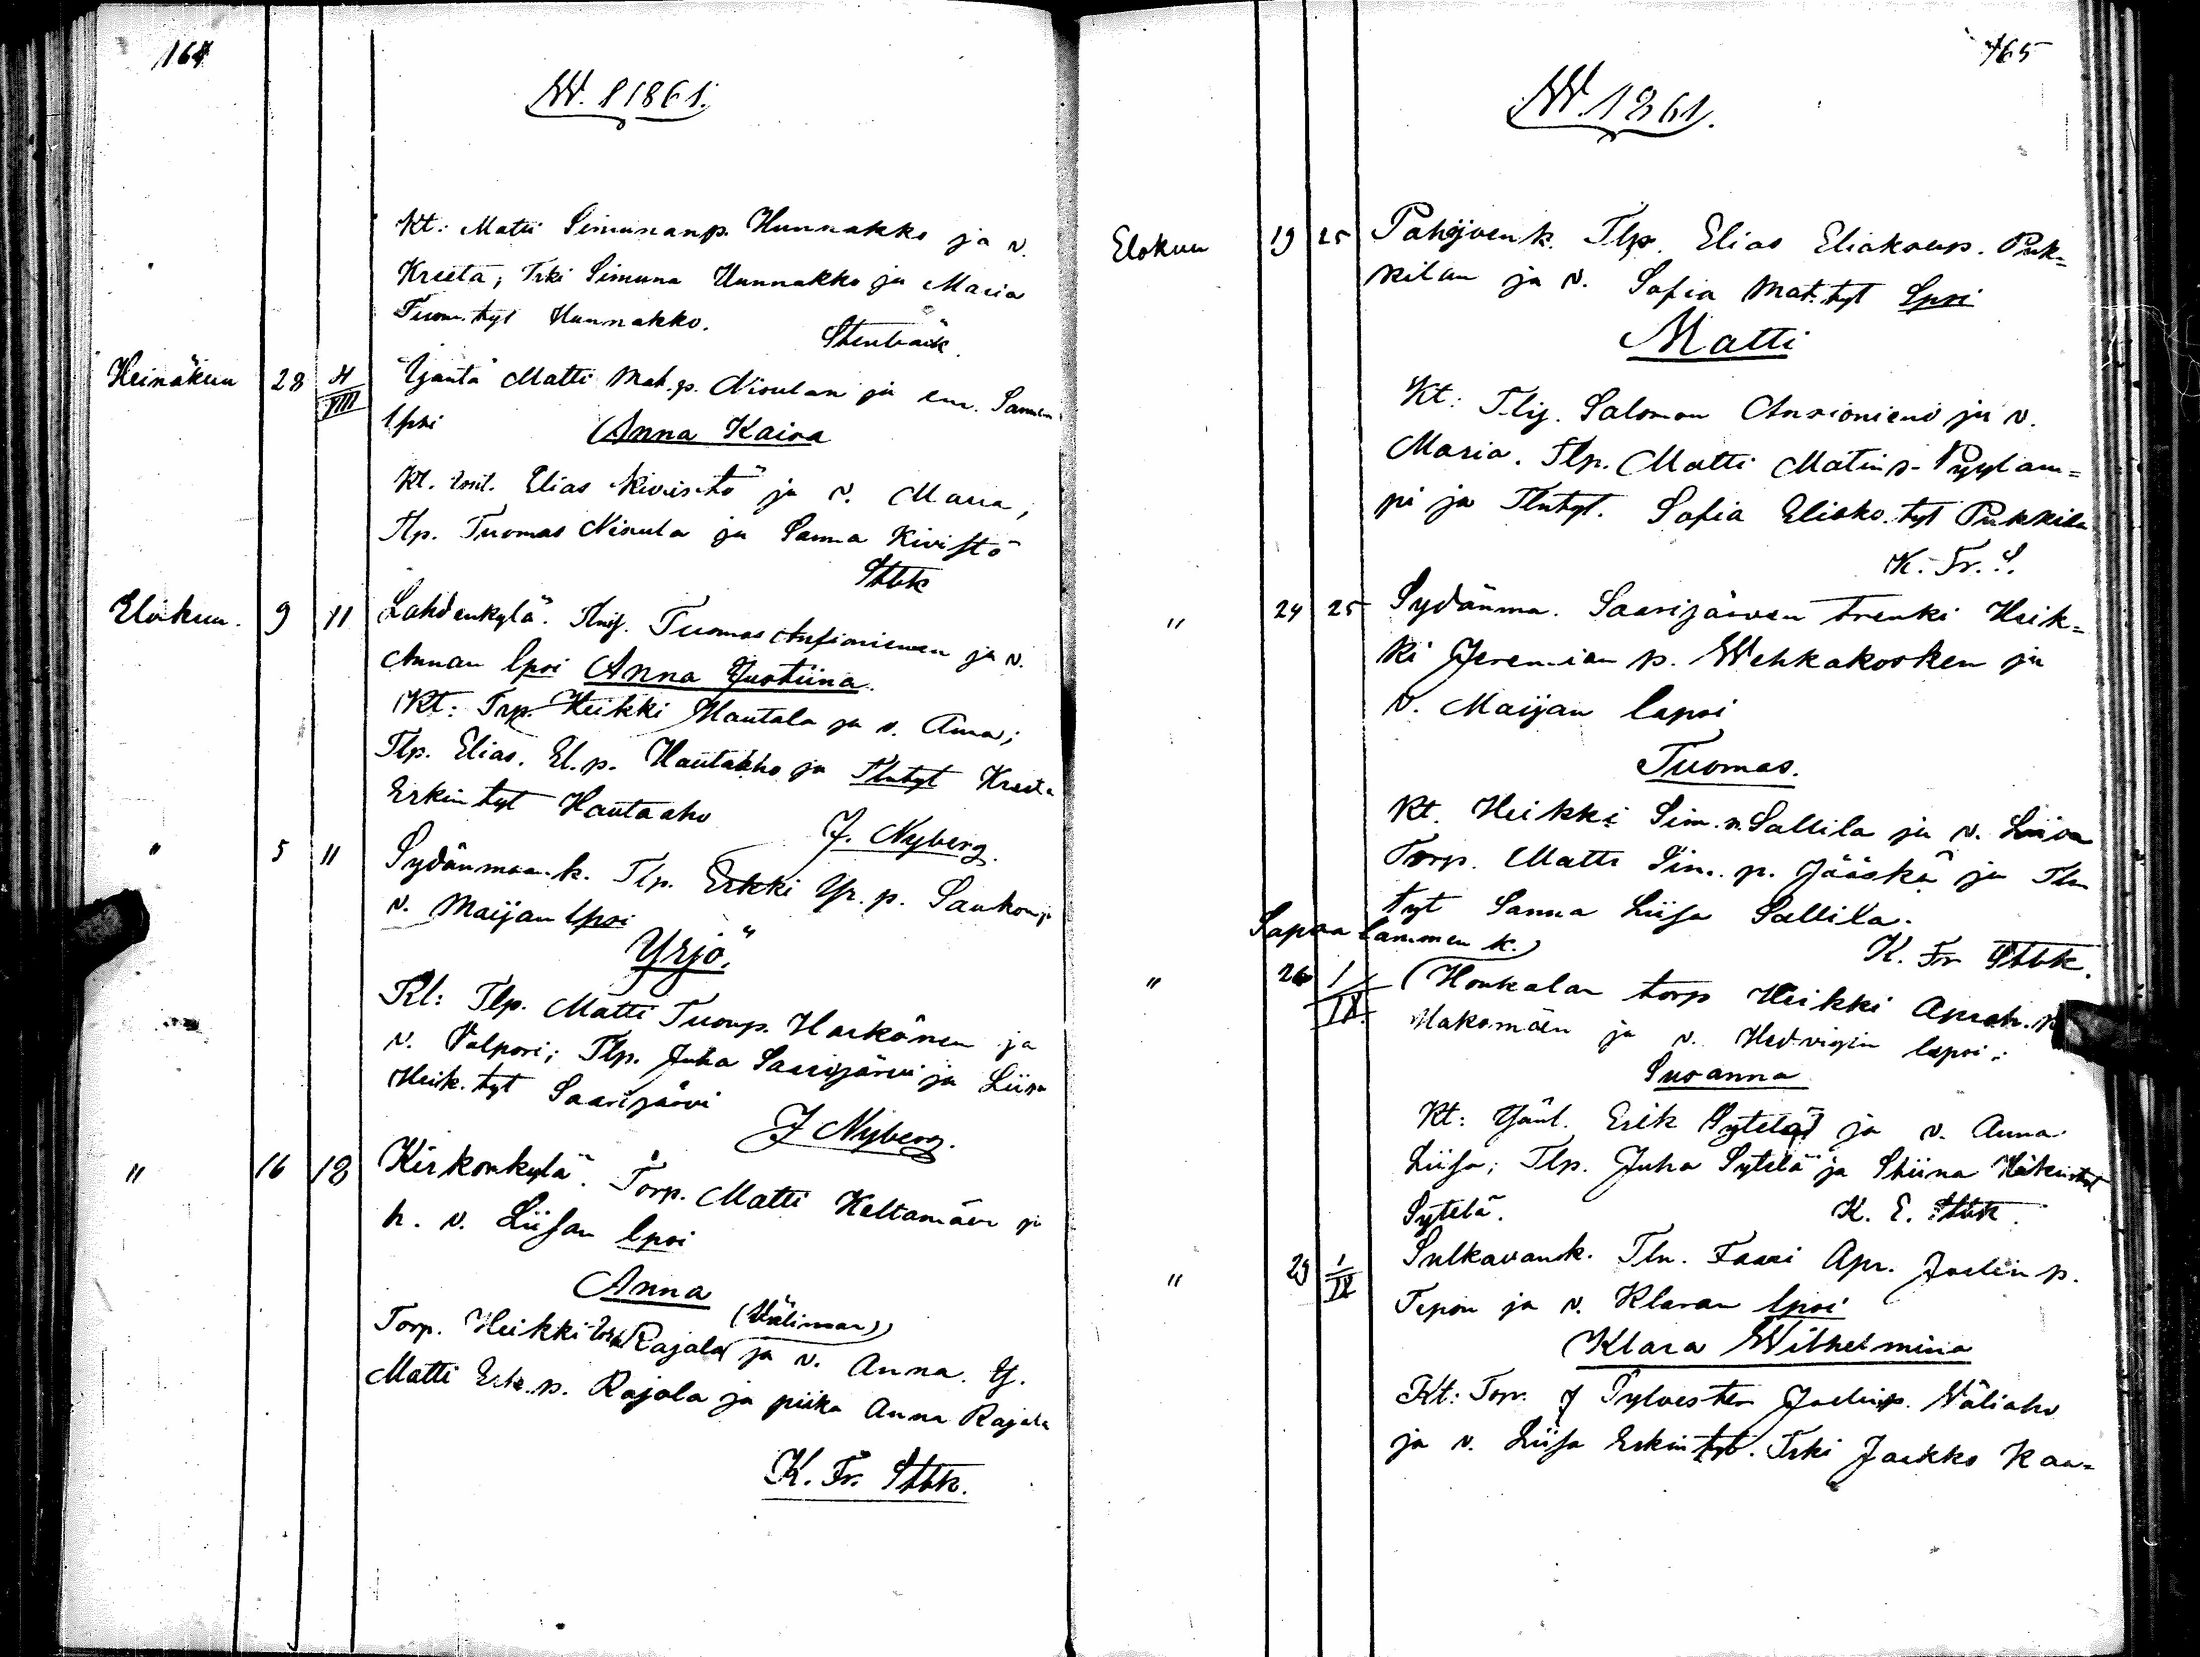 164
W. 1861.
Kt: Matti Simunanp. Hunnakko ja v.
Kreeta; Trki Simuna Hunnakko ja Maria
Tuom. tyt Hunnakko.
Stenbäck.
Heinäkuu 28 4/VIII Yjäntä Matti Mat. p. Niwulan ja em. Sannan
lpsi Anna Kaisa
Kt. Elias Kivistö ja v. Maria,
Tlp. Tuomas Nisula ja Sanna Kivistö
Stbk
Elokuu. 9 11 Lahdenkylä. Tuomas Ansioniemen ja v.
Annan lpsi Anna Justiina.
Kt: Trp. Heikki Mantala ja v. Anna;
Tlp. Elias. El. p. Hautakko ja Tlntyt Kreeta
Erkin tyt Hautaaho
J. Nyberg.
" 5 11 Sydänmaan k. Tlp. Erkki Yr. p. Saukon ja
v. Maijan lpsi
Yrjö.
Kt: Tlp. Matti Tuomp. Harkönen ja
v. Valpori; Tlp. Juha Saarijärvi ja Liisa
Heik. tyt Saarijärvi
J Nyberg.
" 16 18 Kirkonkylä. Torp. Matti Keltamäen ja
h. v. Liisan lpsi
Anna
(Välimaa)
Torp. Heikki Rajala ja v. Anna. Y.
Matti Erk. p. Rajala ja piika Anna Rajala
K. Fr. Stbk.
165
W. 1861.
Elokuu 19 25 Pahijoen k. Tlp. Elias Eliaksenp. Puk=
kilan ja v. Sofia Mat. tyt lpsi
Matti
Kt: Tlij. Salomon Ansionieni ja v.
Maria. Tlp. Matti Matin p. Pyylam=
pi ja Tlntyt. Sofia Eliaks. tyt Pukkila
K. Fr. S.
" 24 25 Sydänma. Saarijärven trenki Heik=
ki Jeremian p. Wehkakosken ja
v. Maijan lapsi
Tuomas.
Kt. Heikki Sim. p. Sallila ja v. Liisa
Torp. Matti Sim. p. Jääskä ja Tln
tyt Sanna Liisa Sallila.
K. Fr Stbk.
Sapsalammen k.
" 26 1/IX (Honkalan torp Heikki Aprah. p
Hakomäen ja v. Hedvigin lapsi:
Susanna
Kt: Yänt. Erik Sytelä ja v. Anna
Liisa; Tlp. Juha Sytelä ja Stiina
Sytelä.
K. E. Stbk.
" 29 1/IX Sulkavank. Tln. Faari Apr. Joelin p.
Tepon ja v. Klaran lpsi
Klara Wilhelmina
Kt: Torp. Sylvester Joelinp. Väliaho
ja v. Liisa Erkin tyt. Trki Jaakko Kan=